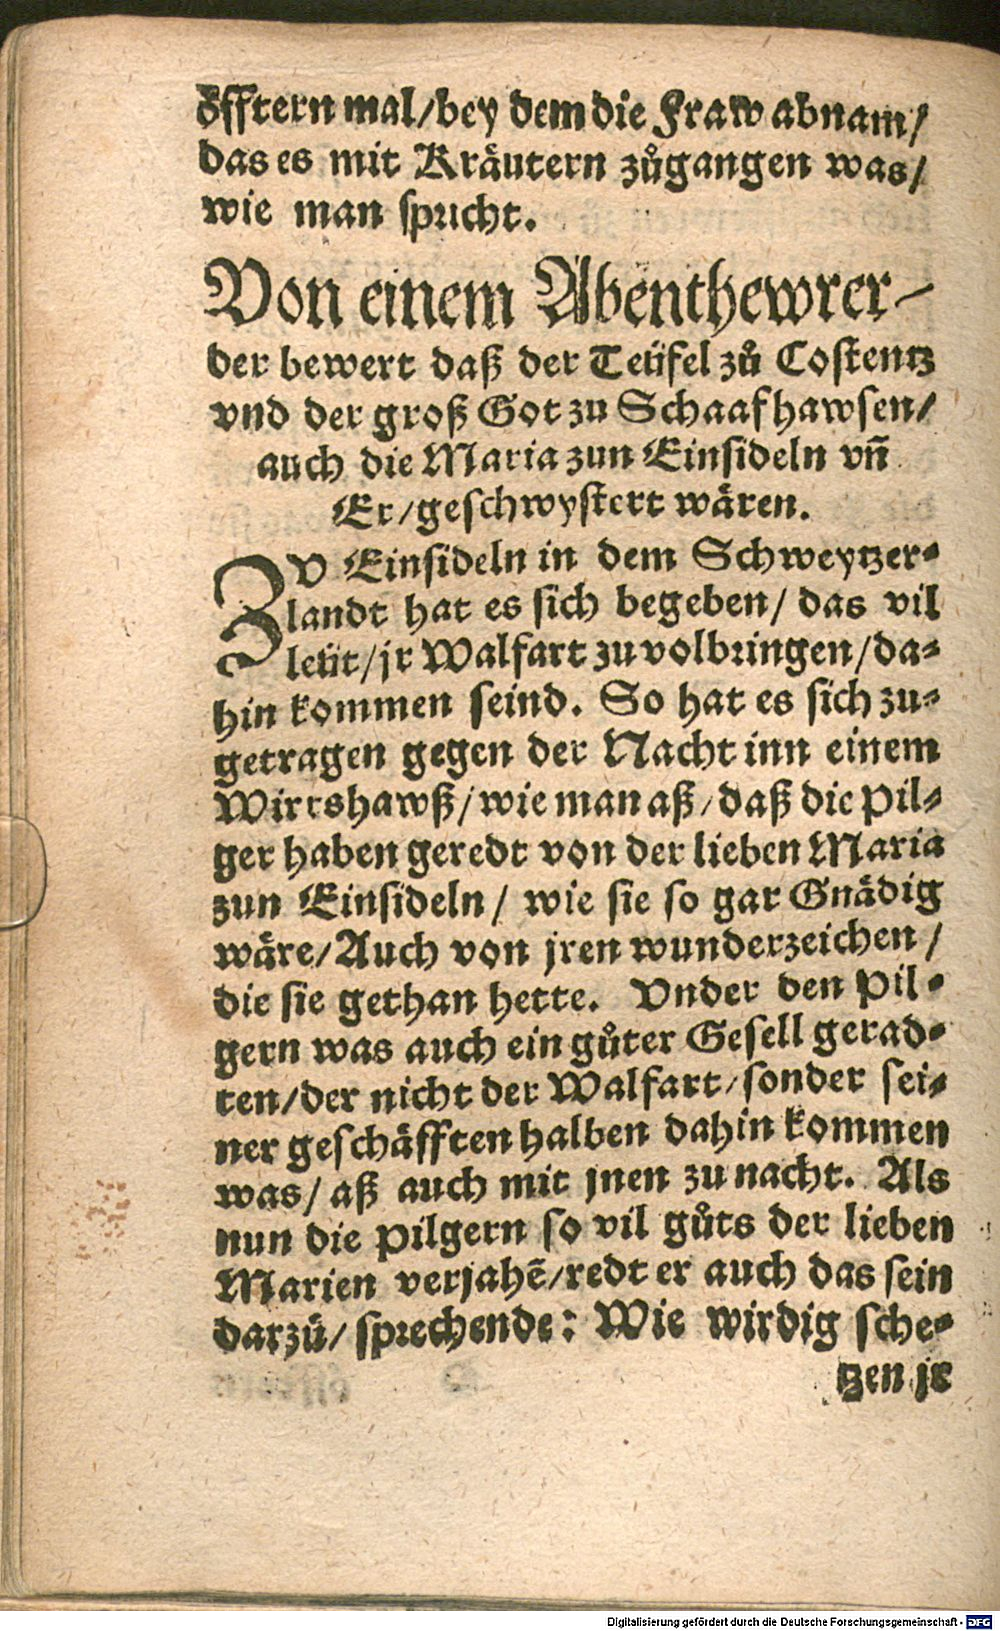 öfftern mal/bey dem die Fraw abnam/
das es mit Kräutern zůgangen was/
wie man spricht.
Von einem Abenthewrer-
der bewert daß der Teüfel zů Costentz
vnd der groß Got zu Schaafhawsen/
auch die Maria zun Einsideln vñ
Er/geschwystert wären.
ZV Einsideln in dem Schweytzer-
landt hat es sich begeben/ das vil
leüt/jr Walfart zu volbringen/da-
hin kommen seind. So hat es sich zu-
getragen gegen der Nacht inn einem
Wirtshawß/wie man aß/daß die Pil-
ger haben geredt von der lieben Maria
zun Einsideln/ wie sie so gar Gnädig
wäre/Auch von jren wunderzeichen/
die sie gethan hette. Vnder den Pil-
gern was auch ein gůter Gesell gerad-
ten/der nicht der Walfart/sonder sei-
ner geschäfften halben dahin kommen
was/ aß auch mit jnen zu nacht. Als
nun die Pilgern so vil gůts der lieben
Marien verjahẽ/redt er auch das sein
darzů/ sprechende: Wie wirdig sche-
tzen jr
Digitalisierung gefördert durch die Deutsche Forschungsgemeinschaft - DFG